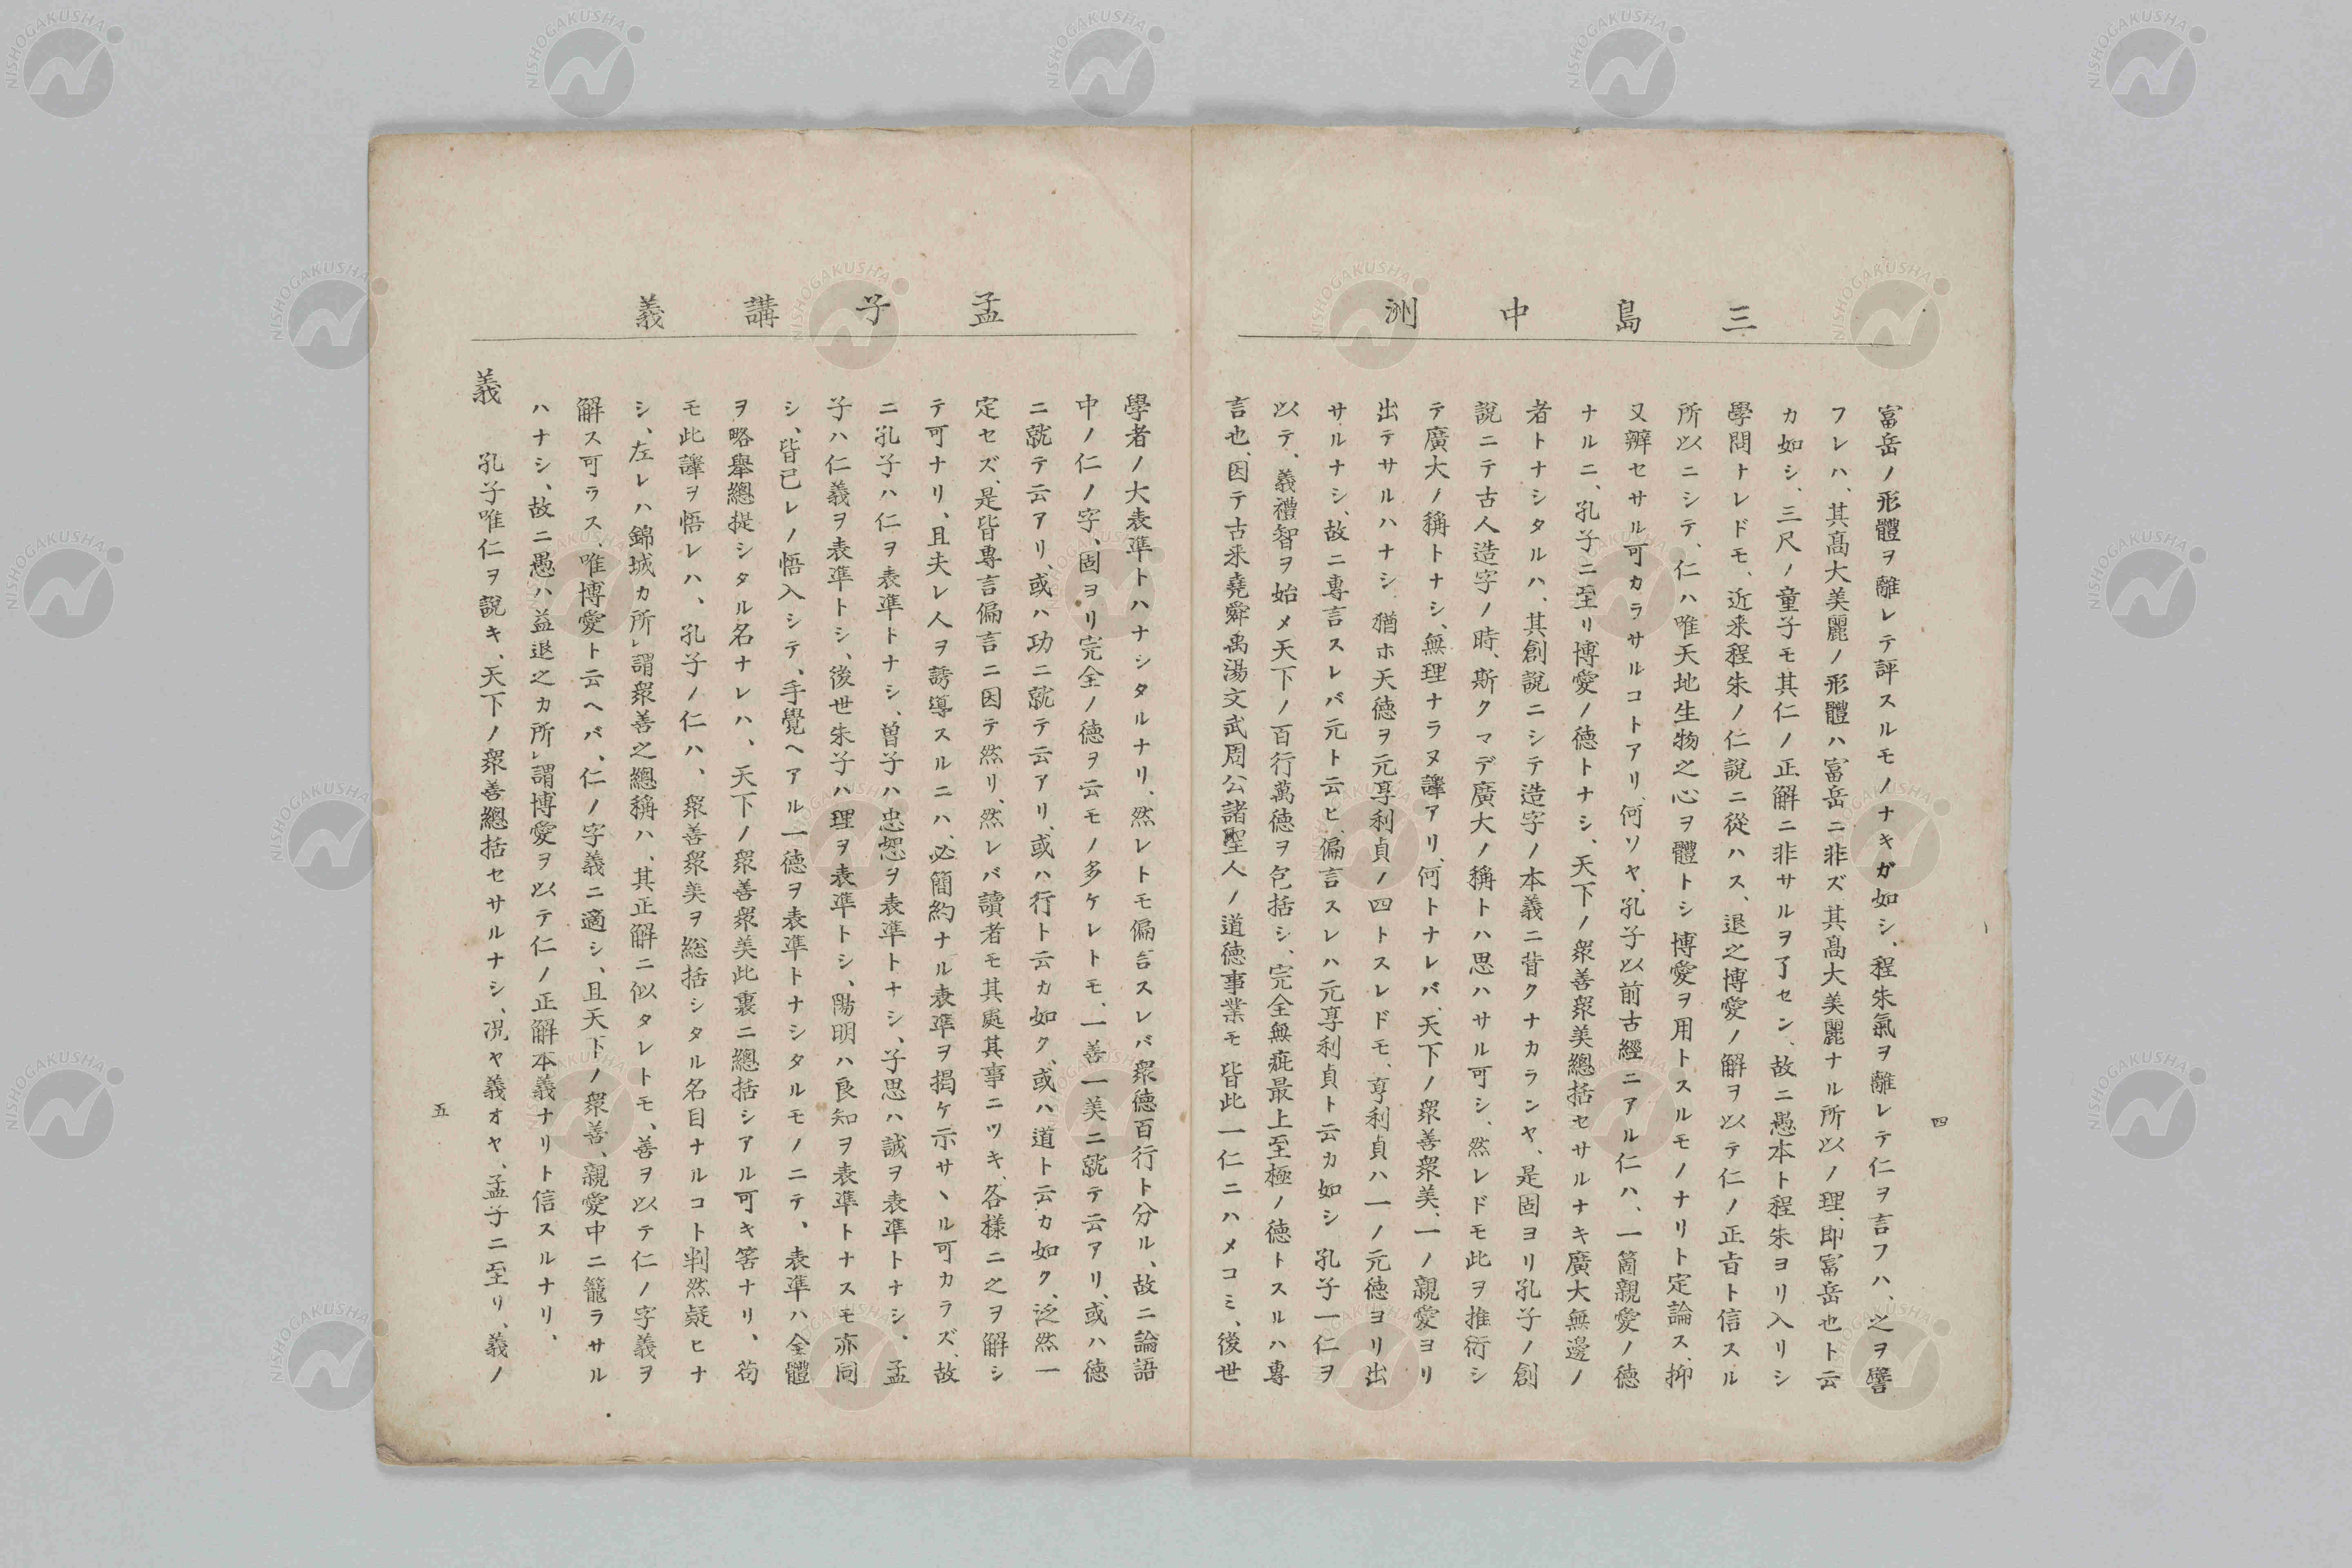 三島中洲
富岳ノ形體ヲ離レテ評スルモノナキガ如シ、程朱氣ヲ離レテ仁ヲ言フハ、之ヲ譬
フレハ、其髙大美麗ノ形體ハ富岳ニ非ズ、其髙大美麗ナル所以ノ理、即富岳也ト云
カ如シ、三尺ノ童子モ其仁ノ正解ニ非サルヲ了セン、故ニ愚本ト程朱ヨリ入リシ
學問ナレドモ、近来程朱ノ仁說ニ從ハス、退之博愛ノ解ヲ以テ仁ノ正旨ト信スル
所以ニシテ、仁ハ唯天地生物之心ヲ體トシ博愛ヲ用トスルモノナリト定論ス、抑
又辨セサル可カラサルコトアリ、何ソヤ、孔子以前古經ニアル仁ハ、一箇親愛ノ德
ナルニ、孔子ニ至リ博愛ノ德トナシ、天下ノ衆善衆美總括セサルナキ廣大無邊ノ
者トナシタルハ、其創說ニシテ造字ノ本義ニ背クナカランヤ、是固ヨリ孔子ノ創
說ニテ古人造字ノ時、斯クマデ廣大ノ稱トハ思ハサル可シ、然レドモ此ヲ推衍シ
テ廣大ノ稱トナシ、無理ナラヌ譯アリ、何トナレバ、天下ノ衆善衆美、一ノ親愛ヨリ
出テサルハナシ、猶ホ天德ヲ元享利貞ノ四トスレドモ、享利貞ハ一ノ元德ヨリ出
サルナシ、故ニ專言スレバ元ト云ヒ、偏言スレハ元享利貞ト云カ如シ、孔子一仁ヲ
以テ、義禮智ヲ始メ天下ノ百行萬德ヲ包括シ、完全無疵最上至極ノ德トスルハ專
言也、因テ古来堯舜禹湯文武周公諸聖人ノ道德事業モ皆此一仁ニハメコミ、後世
四
孟子講義
學者ノ大表準トハナシタルナリ、然レトモ偏言スレバ衆德百行ト分ル、故ニ論語
中ノ仁ノ字、固ヨリ完全ノ德ヲ云モノ多ケレトモ、一善一美ニ就テ云アリ、或ハ德
ニ就テ云アリ、或ハ功ニ就テ云アリ、或ハ行ト云カ如ク、或ハ道ト云カ如ク、泛然一
定セズ、是皆專言偏言ニ因テ然リ、然レバ讀者モ其處其事ニツキ、各様ニ之ヲ解シ
テ可ナリ、且夫レ人ヲ誘導スルニハ、必簡約ナル表準ヲ揭ケ示サヽル可カラズ、故
ニ孔子ハ仁ヲ表準トナシ、曽子ハ忠恕ヲ表準トナシ、子思ハ誠ヲ表準トナシ、孟
子ハ仁義ヲ表準トシ、後世朱子ハ理ヲ表準トシ、陽明ハ良知ヲ表準トナスモ亦同
シ、皆己レノ悟入シテ、手覺ヘアル一德ヲ表準トナシタルモノニテ、表準ハ全體
ヲ略舉總提シタル名ナレハ、天下ノ衆善衆美此裏ニ總括シアル可キ筈ナリ、苟
モ此譯ヲ悟レハ、孔子ノ仁ハ、衆善衆美ヲ総括シタル名目ナルコト判然疑ヒナ
シ、左レハ錦城カ所レ謂衆善之總稱ハ、其正解ニ似タレトモ、善ヲ以テ仁ノ字義ヲ
解ス可ラス、唯博愛ト云ヘバ、仁ノ字義ニ適シ、且天下ノ衆善、親愛中ニ籠ラサル
ハナシ、故ニ愚ハ益退之カ所レ謂博愛ヲ以テ仁ノ正解本義ナリト信スルナリ、
義　孔子唯仁ヲ說キ、天下ノ衆善總括セサルナシ、况ヤ義オヤ、孟子ニ至リ、義ノ
五
NISHOGAKUSHA